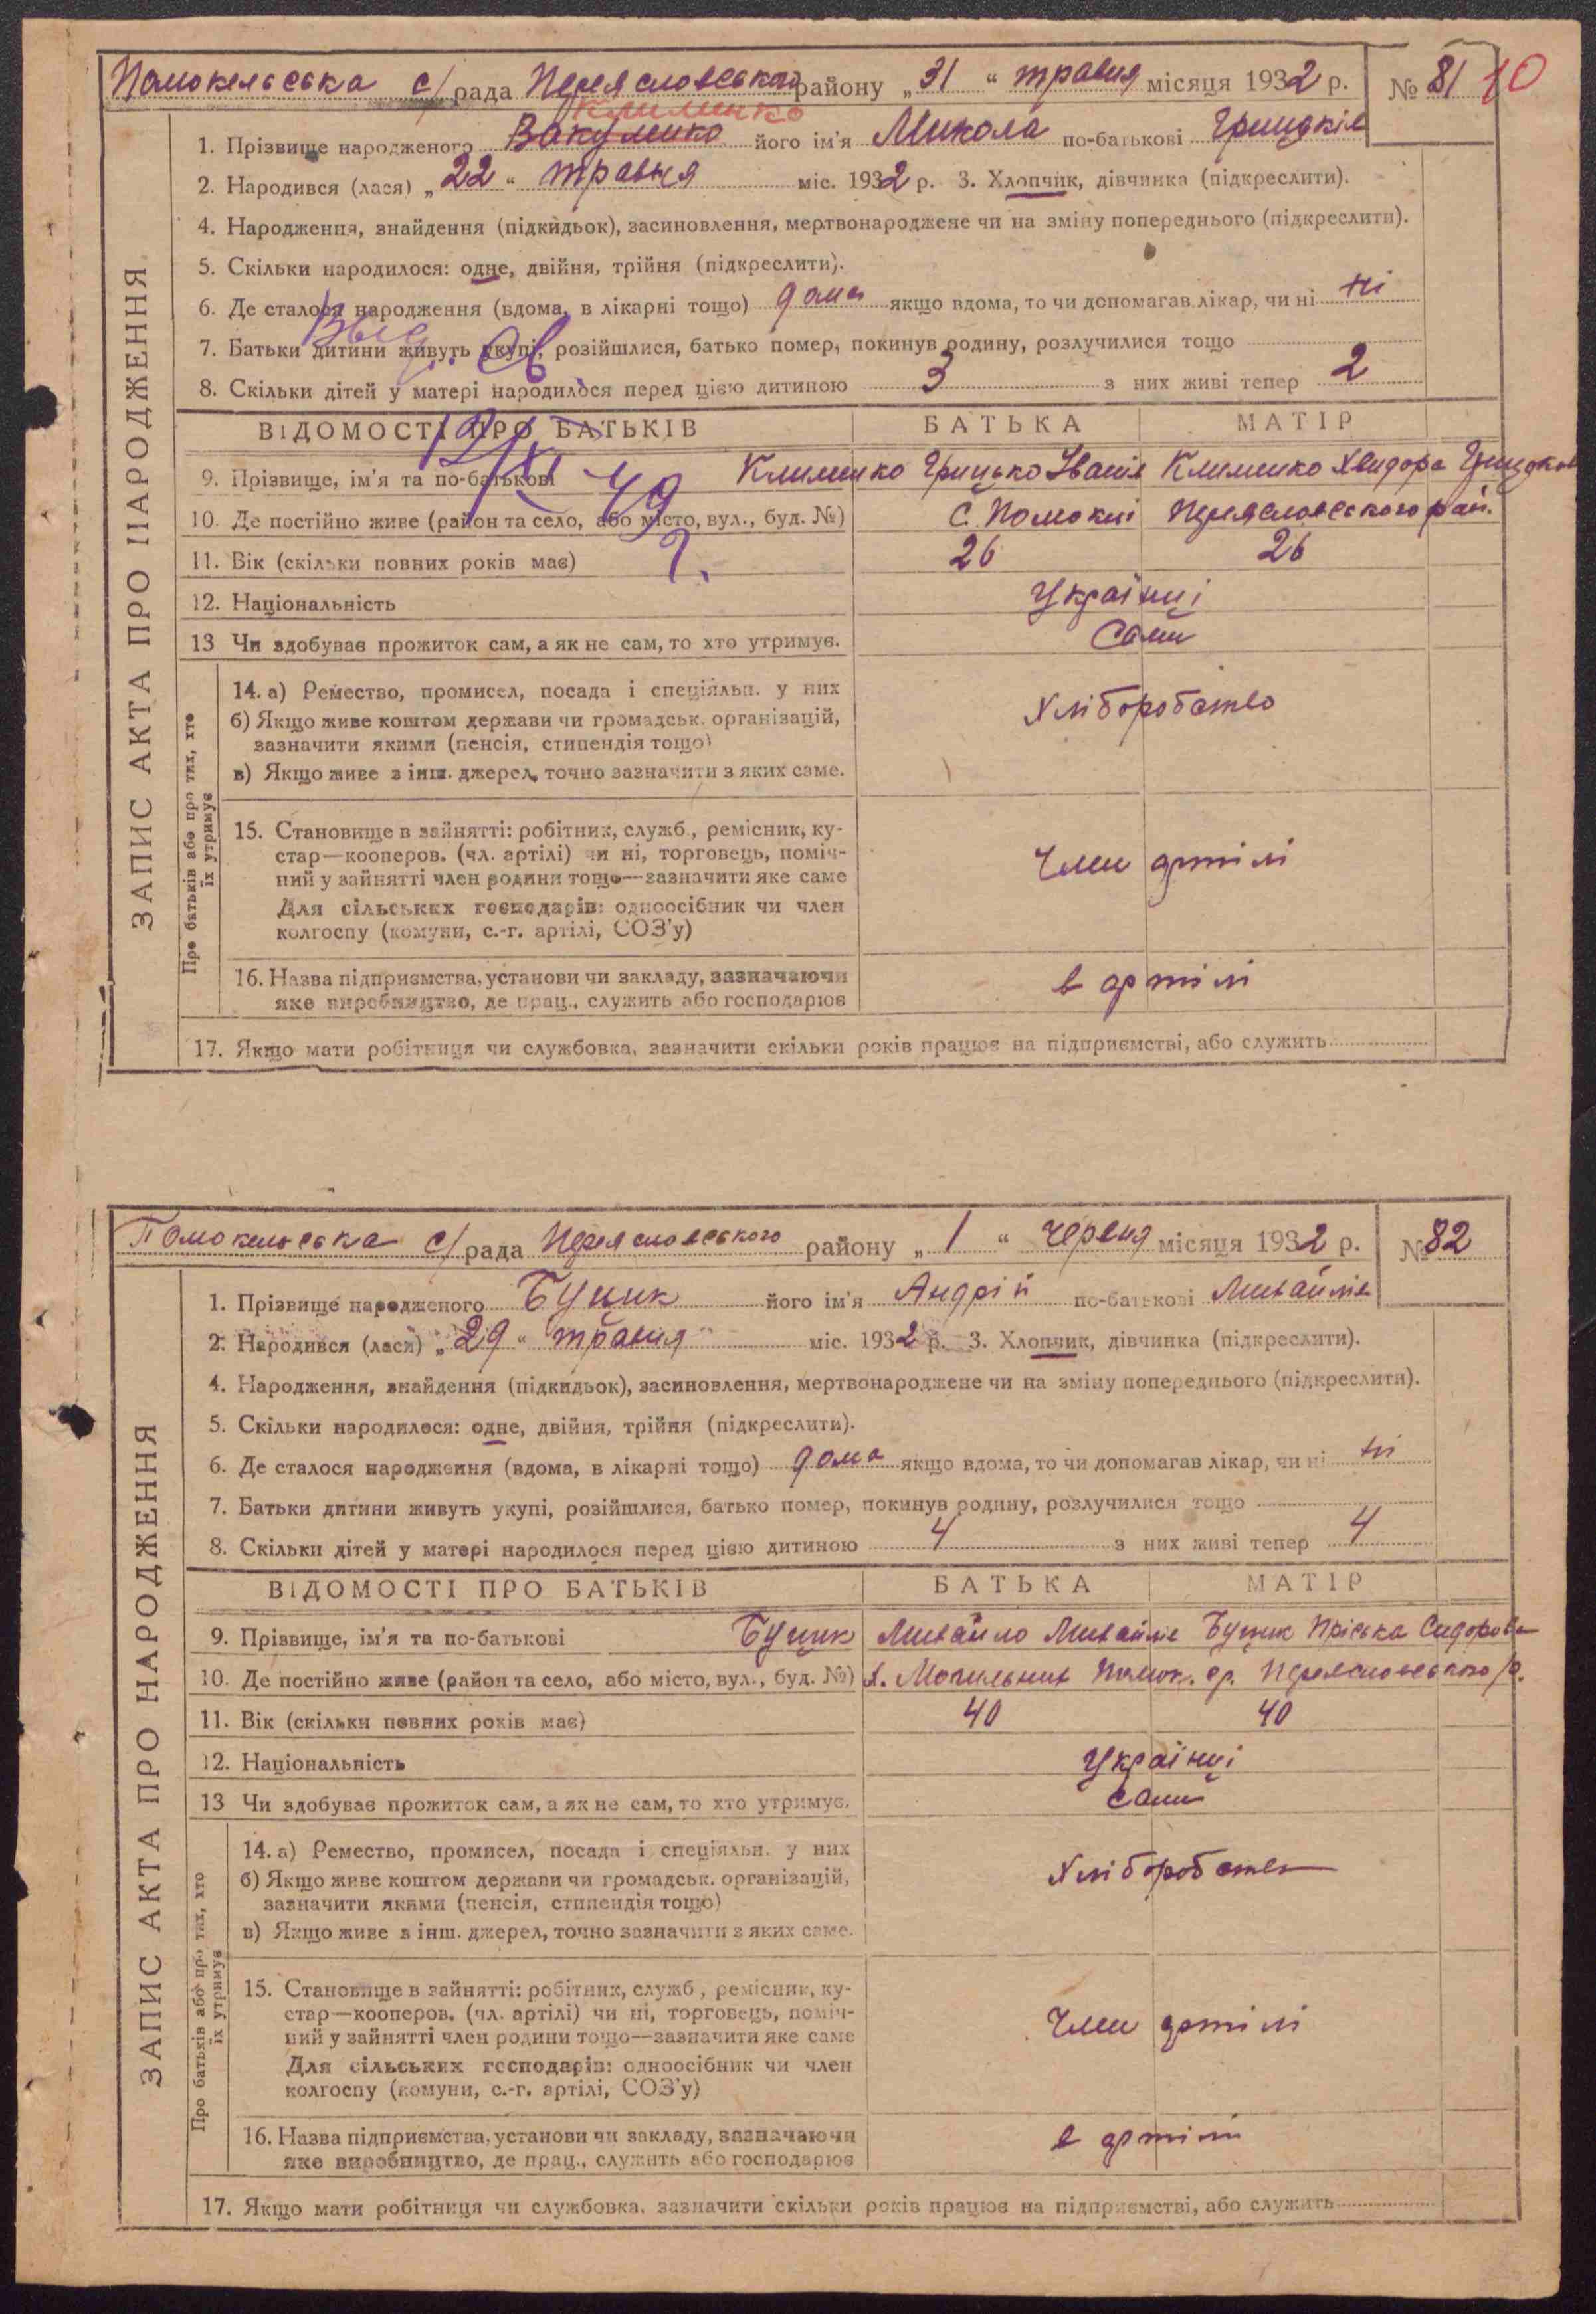 Помокельська с/рада Переясловського району „31“ травня місяця 1932 р. № 81 10
Клименко
1. Прізвище народженого Вакуленко його ім'я Микола по-батькові Грицьків
2. Народився (лася) „22“ травня міс. 1932 р. 3. Хлопчик, дівчинка (підкреслити).
4. Народження, знайдення (підкидьок), засиновлення, мертвонароджене чи на зміну попереднього (підкреслити).
5. Скільки народилося: одне, двійня, трійня (підкреслити).
6. Де сталося народження (вдома, в лікарні тощо) дома якщо вдома, то чи допомагав лікар, чи ні ні
7. Батьки дитини живуть укупі, розійшлися, батько помер, покинув родину, розлучилися тощо
Выд. св.
8. Скільки дітей у матері народилося перед цією дитиною 3 з них живі тепер 2
ВІДОМОСТІ ПРО БАТЬКІВ БАТЬКА МАТІР
9. Прізвище, ім'я та по-батькові Клименко Грицько Іванів Клименко Хвидора Грицьков
10. Де постійно живе (район та село, або місто, вул., буд. №) С. Помоклі Переясловського рай.
49
11. Вік (скільки повних років має) 26 26
12. Національність Українці
13 Чи здобуває прожиток сам, а як не сам, то хто утримує. Сами
14. а) Ремество, промисел, посада і спеціяльн. у них
Хліборобство
б) Якщо живе коштом держави чи громадськ. організацій,
зазначити якими (пенсія, стипендія тощо)
в) Якщо живе з інш. джерел, точно зазначити з яких саме.
15. Становище в зайнятті: робітник, служб., ремісник, ку-
стар—кооперов. (чл. артілі) чи ні, торговець, поміч-
Член артілі
ний у зайнятті член родини тощо—зазначити яке саме
Для сільських господарів: одноосібник чи член
колгоспу (комуни, с.-г. артілі, СОЗ'у)
16. Назва підприємства, установи чи закладу, зазначаючи
в артілі
яке виробництво, де прац., служить або господарює
17. Якщо мати робітниця чи службовка, зазначити скільки років працює на підприємстві, або служить
ЗАПИС АКТА ПРО НАРОДЖЕННЯ
Про батьків або про тих, хто
їх утримує
Помокельська с/рада Переясловського району „1“ червня місяця 1932 р. № 82
1. Прізвище народженого Буцик його ім'я Андрій по-батькові Михайлів
2. Народився (лася) „29“ травня міс. 1932 р. 3. Хлопчик, дівчинка (підкреслити).
4. Народження, знайдення (підкидьок), засиновлення, мертвонароджене чи на зміну попереднього (підкреслити).
5. Скільки народилося: одне, двійня, трійня (підкреслити).
6. Де сталося народження (вдома, в лікарні тощо) дома якщо вдома, то чи допомагав лікар, чи ні ні
7. Батьки дитини живуть укупі, розійшлися, батько помер, покинув родину, розлучилися тощо
8. Скільки дітей у матері народилося перед цією дитиною 4 з них живі тепер 4
ВІДОМОСТІ ПРО БАТЬКІВ БАТЬКА МАТІР
9. Прізвище, ім'я та по-батькові Буцик Михайло Михайлів Буцик Пріська Сидорова
10. Де постійно живе (район та село, або місто, вул., буд. №) х. Могильних Помок. ср. Переясловського р.
11. Вік (скільки повних років має) 40 40
12. Національність Українці
13 Чи здобуває прожиток сам, а як не сам, то хто утримує. Сами
14. а) Ремество, промисел, посада і спеціяльн. у них
Хліборобство
б) Якщо живе коштом держави чи громадськ. організацій,
зазначити якими (пенсія, стипендія тощо)
в) Якщо живе з інш. джерел, точно зазначити з яких саме.
15. Становище в зайнятті: робітник, служб., ремісник, ку-
стар—кооперов. (чл. артілі) чи ні, торговець, поміч-
Член артілі
ний у зайнятті член родини тощо—зазначити яке саме
Для сільських господарів: одноосібник чи член
колгоспу (комуни, с.-г. артілі, СОЗ'у)
16. Назва підприємства, установи чи закладу, зазначаючи
в артілі
яке виробництво, де прац., служить або господарює
17. Якщо мати робітниця чи службовка, зазначити скільки років працює на підприємстві, або служить
ЗАПИС АКТА ПРО НАРОДЖЕННЯ
Про батьків або про тих, хто
їх утримує